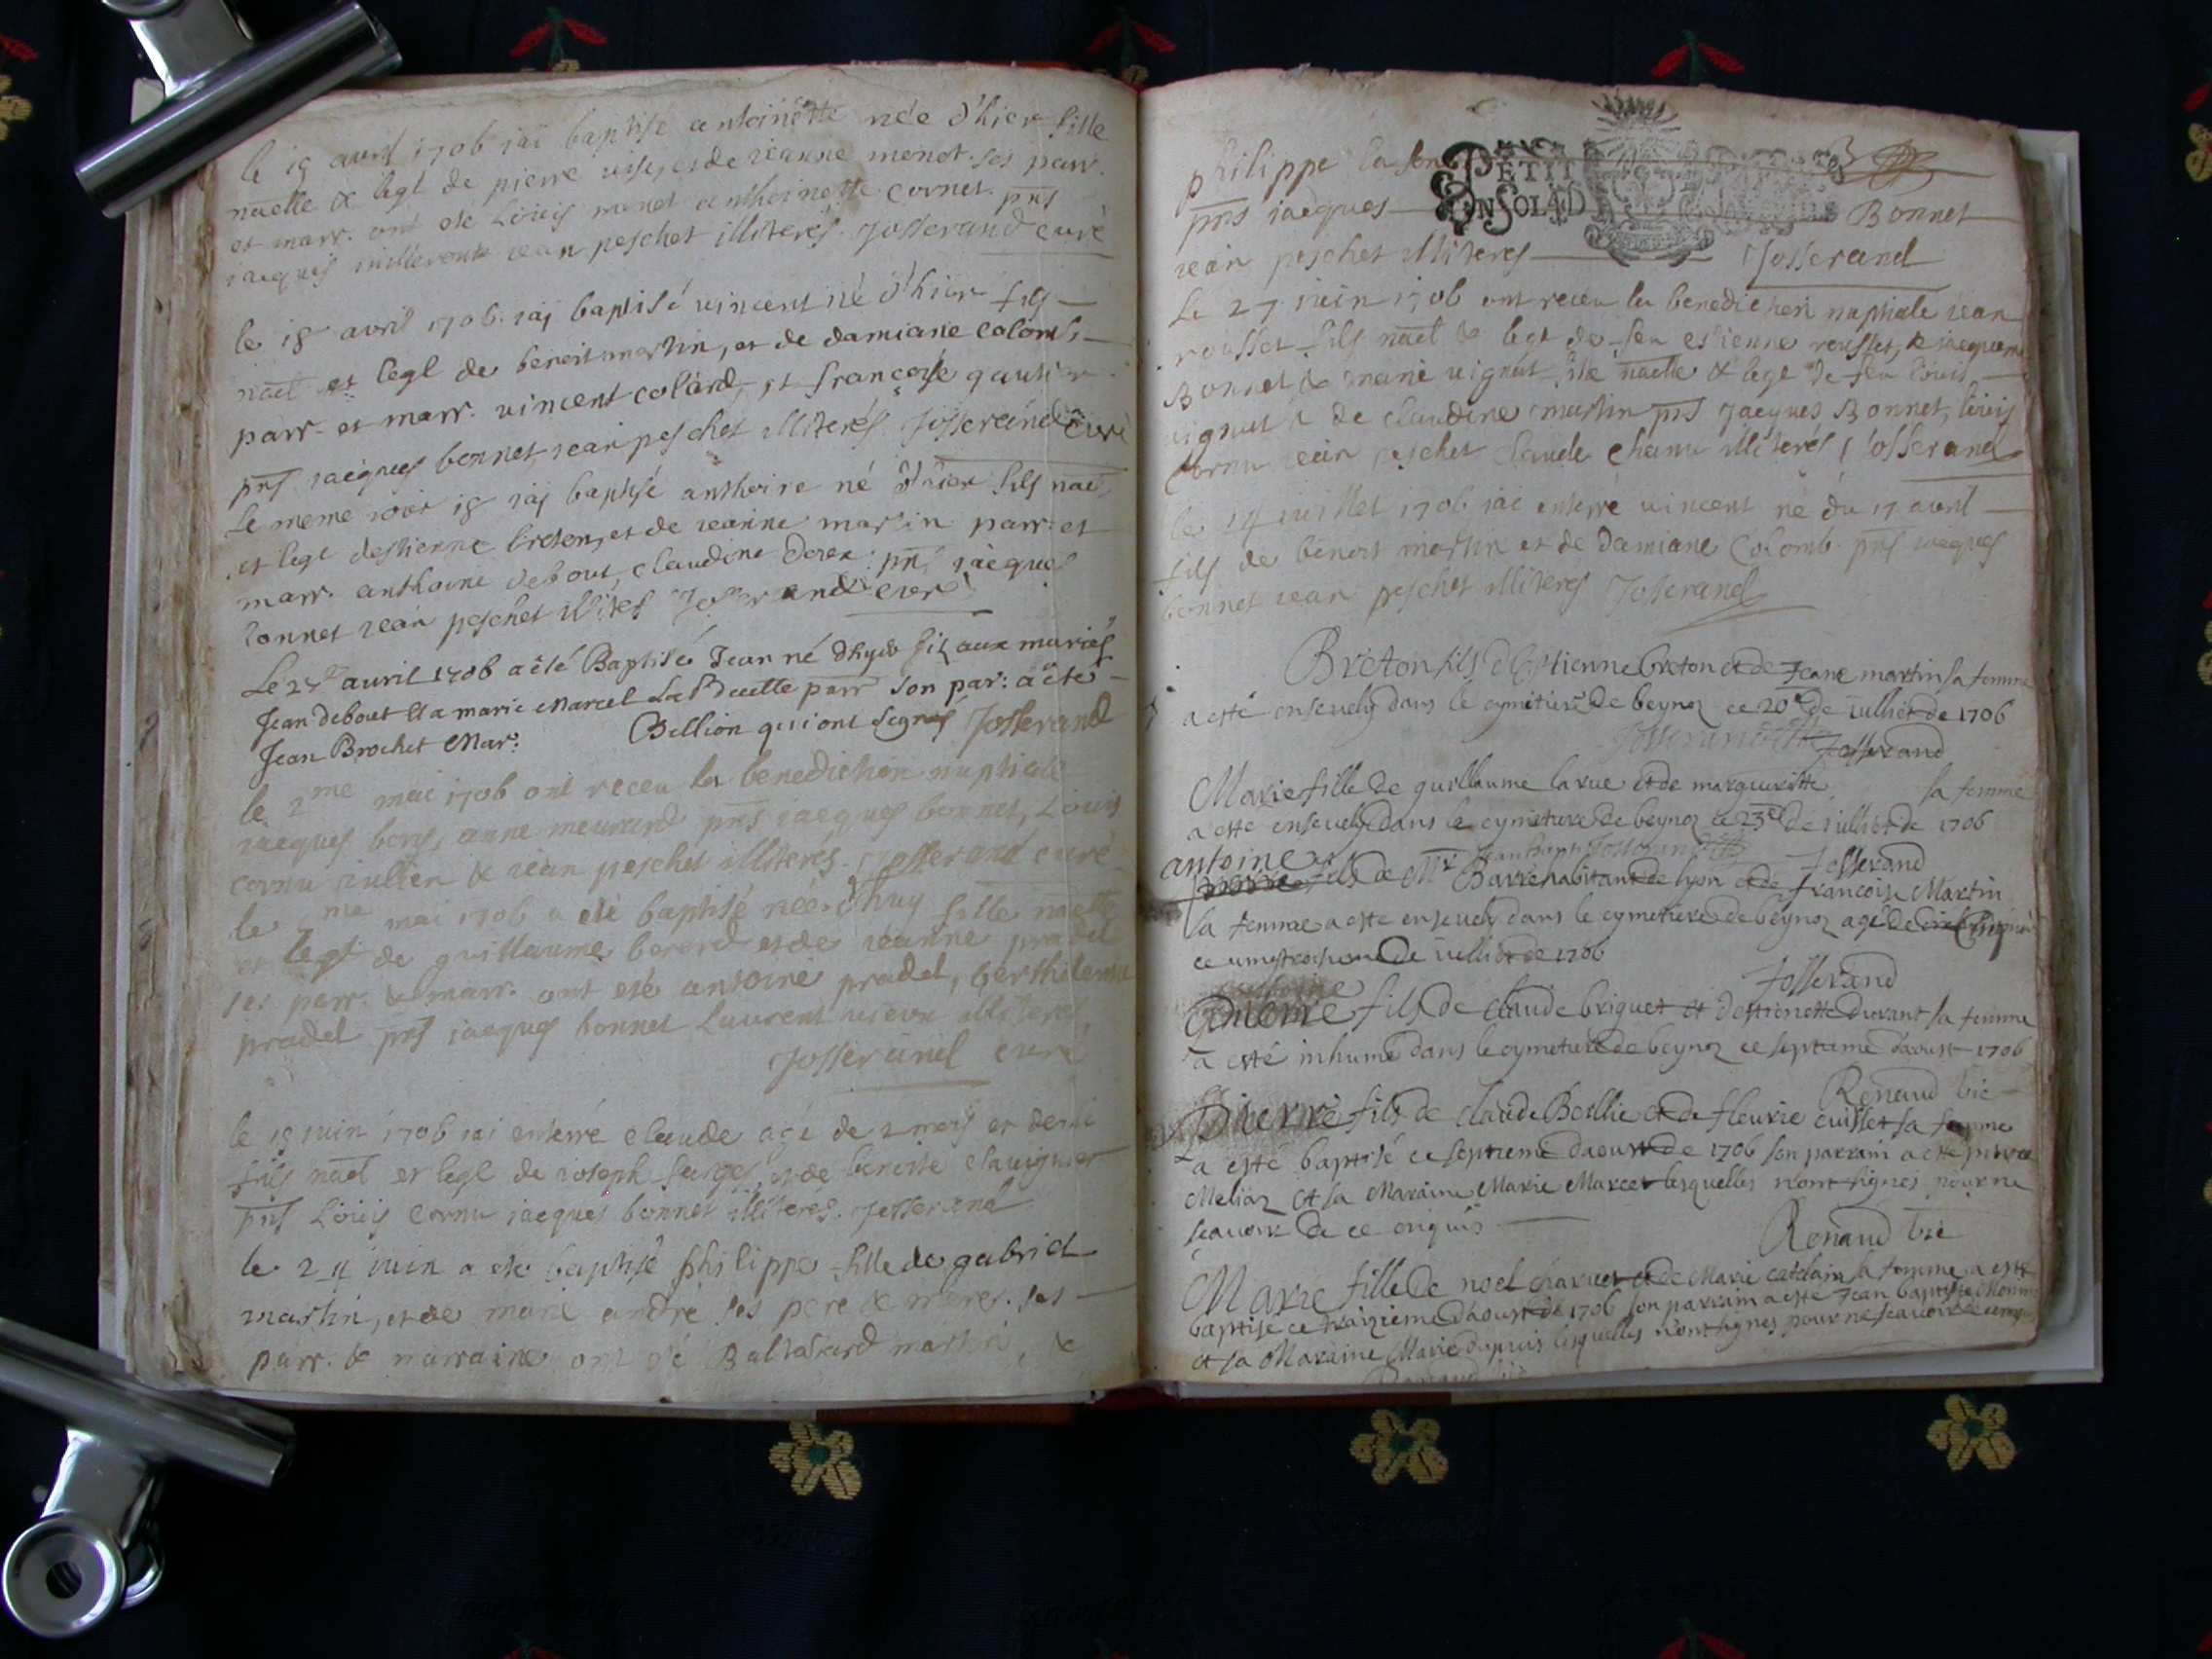 le 18 avril 1706 iai baptisé antoinette née d'hier fille
naelle & legt de pierre et de ieanne monet ses parr.
et marr. ont eté Loüis monet anthoinette cornet. pnts
iacques iean peschet illiterés. Josserand curé
le 18 avril 1706. iaj baptisé vincent né d'hier fils
nael et legl de benoit martin, et de damiane colomb
parr. et marr. vincent colard, et françoise gautier
pnts iacques bonnet, iean peschet illiterés Josserand curé
Le meme iour 18 iaj baptisé anthoine né d'hier fils nael,
et legt destienne breton, et de ieanne martin parr. et
marr. anthoine debout, claudine pnts iacques
bonnet iean peschet illites Josserand curé
Le 27 auril 1706 a été Baptisé Jean né dhyer fiz aux mariés
Jean debout et a marie Marcel parr son par: a été
Jean Brochet Mar: Billion qui ont signes Josserand
le 2me mai 1706 ont receu la benediction nuptiale
iacques bons, anne meurand pnts iacques bonnet, Loüis
cornu iullien & iean peschet illiterés. Josserand curé
le me mai 1706 a eté baptisé née d'huy fille naelle
et legt de guillaume berard et de ieanne pradel
ses parr. & marr. ont eté antoine pradel, berthelemie
pradel pnts iacques bonnet Laurent illiterés,
Josserand curé
le 19 iuin 1706 iai enterré claude agé de 2 mois et demi
fils nael et legl de ioseph et de benoite
pnts Loüis cornu iacques bonnet illiterés. Josserand
le 24 iuin a eté baptisé philippe fille de gabriel
martin, et de marie andré ses pere & mere. ses
parr. & marraine ont eté Baltasard martin, &
philippe
PETIT
EN SOL 4 D
pnts iacques Bonnet
iean peschet illiteres Josserand
Le 27 iuin 1706 ont receu la benediction nuptiale iean
rousset fils nael & legt de feu estienne rousset, & iacqueme
Bonnet & marie vignat fille naelle & legt de feu Loüis
vignat & de claudine martin pnts Jacques Bonnet, loüis
Cornu iean peschet claude chanu illiterés Josserand
le 14 iuillet 1706 iai enterré vincent né du 17 avril
fils de benoit martin et de damiane Colomb. pnts iacques
bonnet iean peschet illiteres Josserand
Breton fils d Estienne breton et de Jeane martin sa femme
a esté ensevely dans le cymitiere de beynoz ce 20e de iulliet de 1706
Josserand
Marie fille de guillaume larue et de margueritte sa femme
a este ensevely dans le cymetiere de beynoz ce 23e de iulliet de 1706
Josserand
antoine
fils de Mr Barre habitant de lyon et de francoise Martin
sa femme a este ensevely dans le cymetiere de beynoz agé de
ce de iulliet de 1706
Josserand
fils de claude briquet et destienette durant sa femme
a esté inhumé dans le cymetiere de beynoz ce septieme daoust 1706
Renaud vic
Pierre fils de claude Bellie et de fleurie cuisset sa femme
a este baptisé ce septieme daoust de 1706 son parrain a este pierre
Meliaz et sa Maraine Marie Marcet lesquelles n'ont signés pour ne
scavoir de ce enquis
Renaud vic
Marie fille de noel charvet et de Marie catelain sa femme a este
baptise ce traizieme daoust de 1706 son parrain a este Jean baptiste
et sa Maraine Marie dupuis lesquelles n'ont signes pour ne scavoir